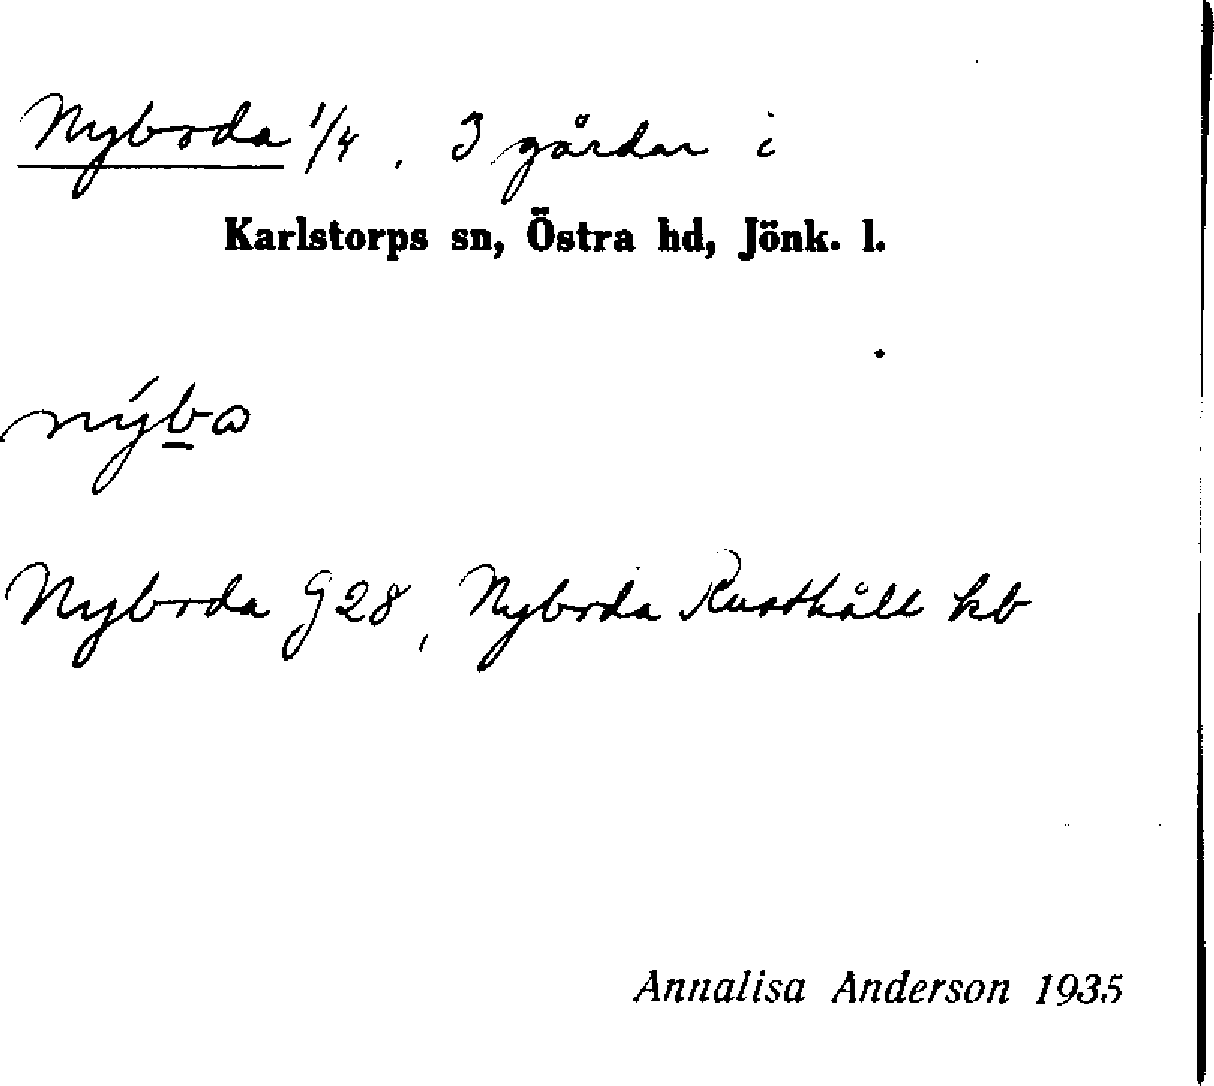 Nyboda 1/4, 3 gårdar i
Karlstorps sn, Östra hd, Jönk. l.
Nyboda G28, Nyboda Rusthåll kb
Annalisa Anderson 1935